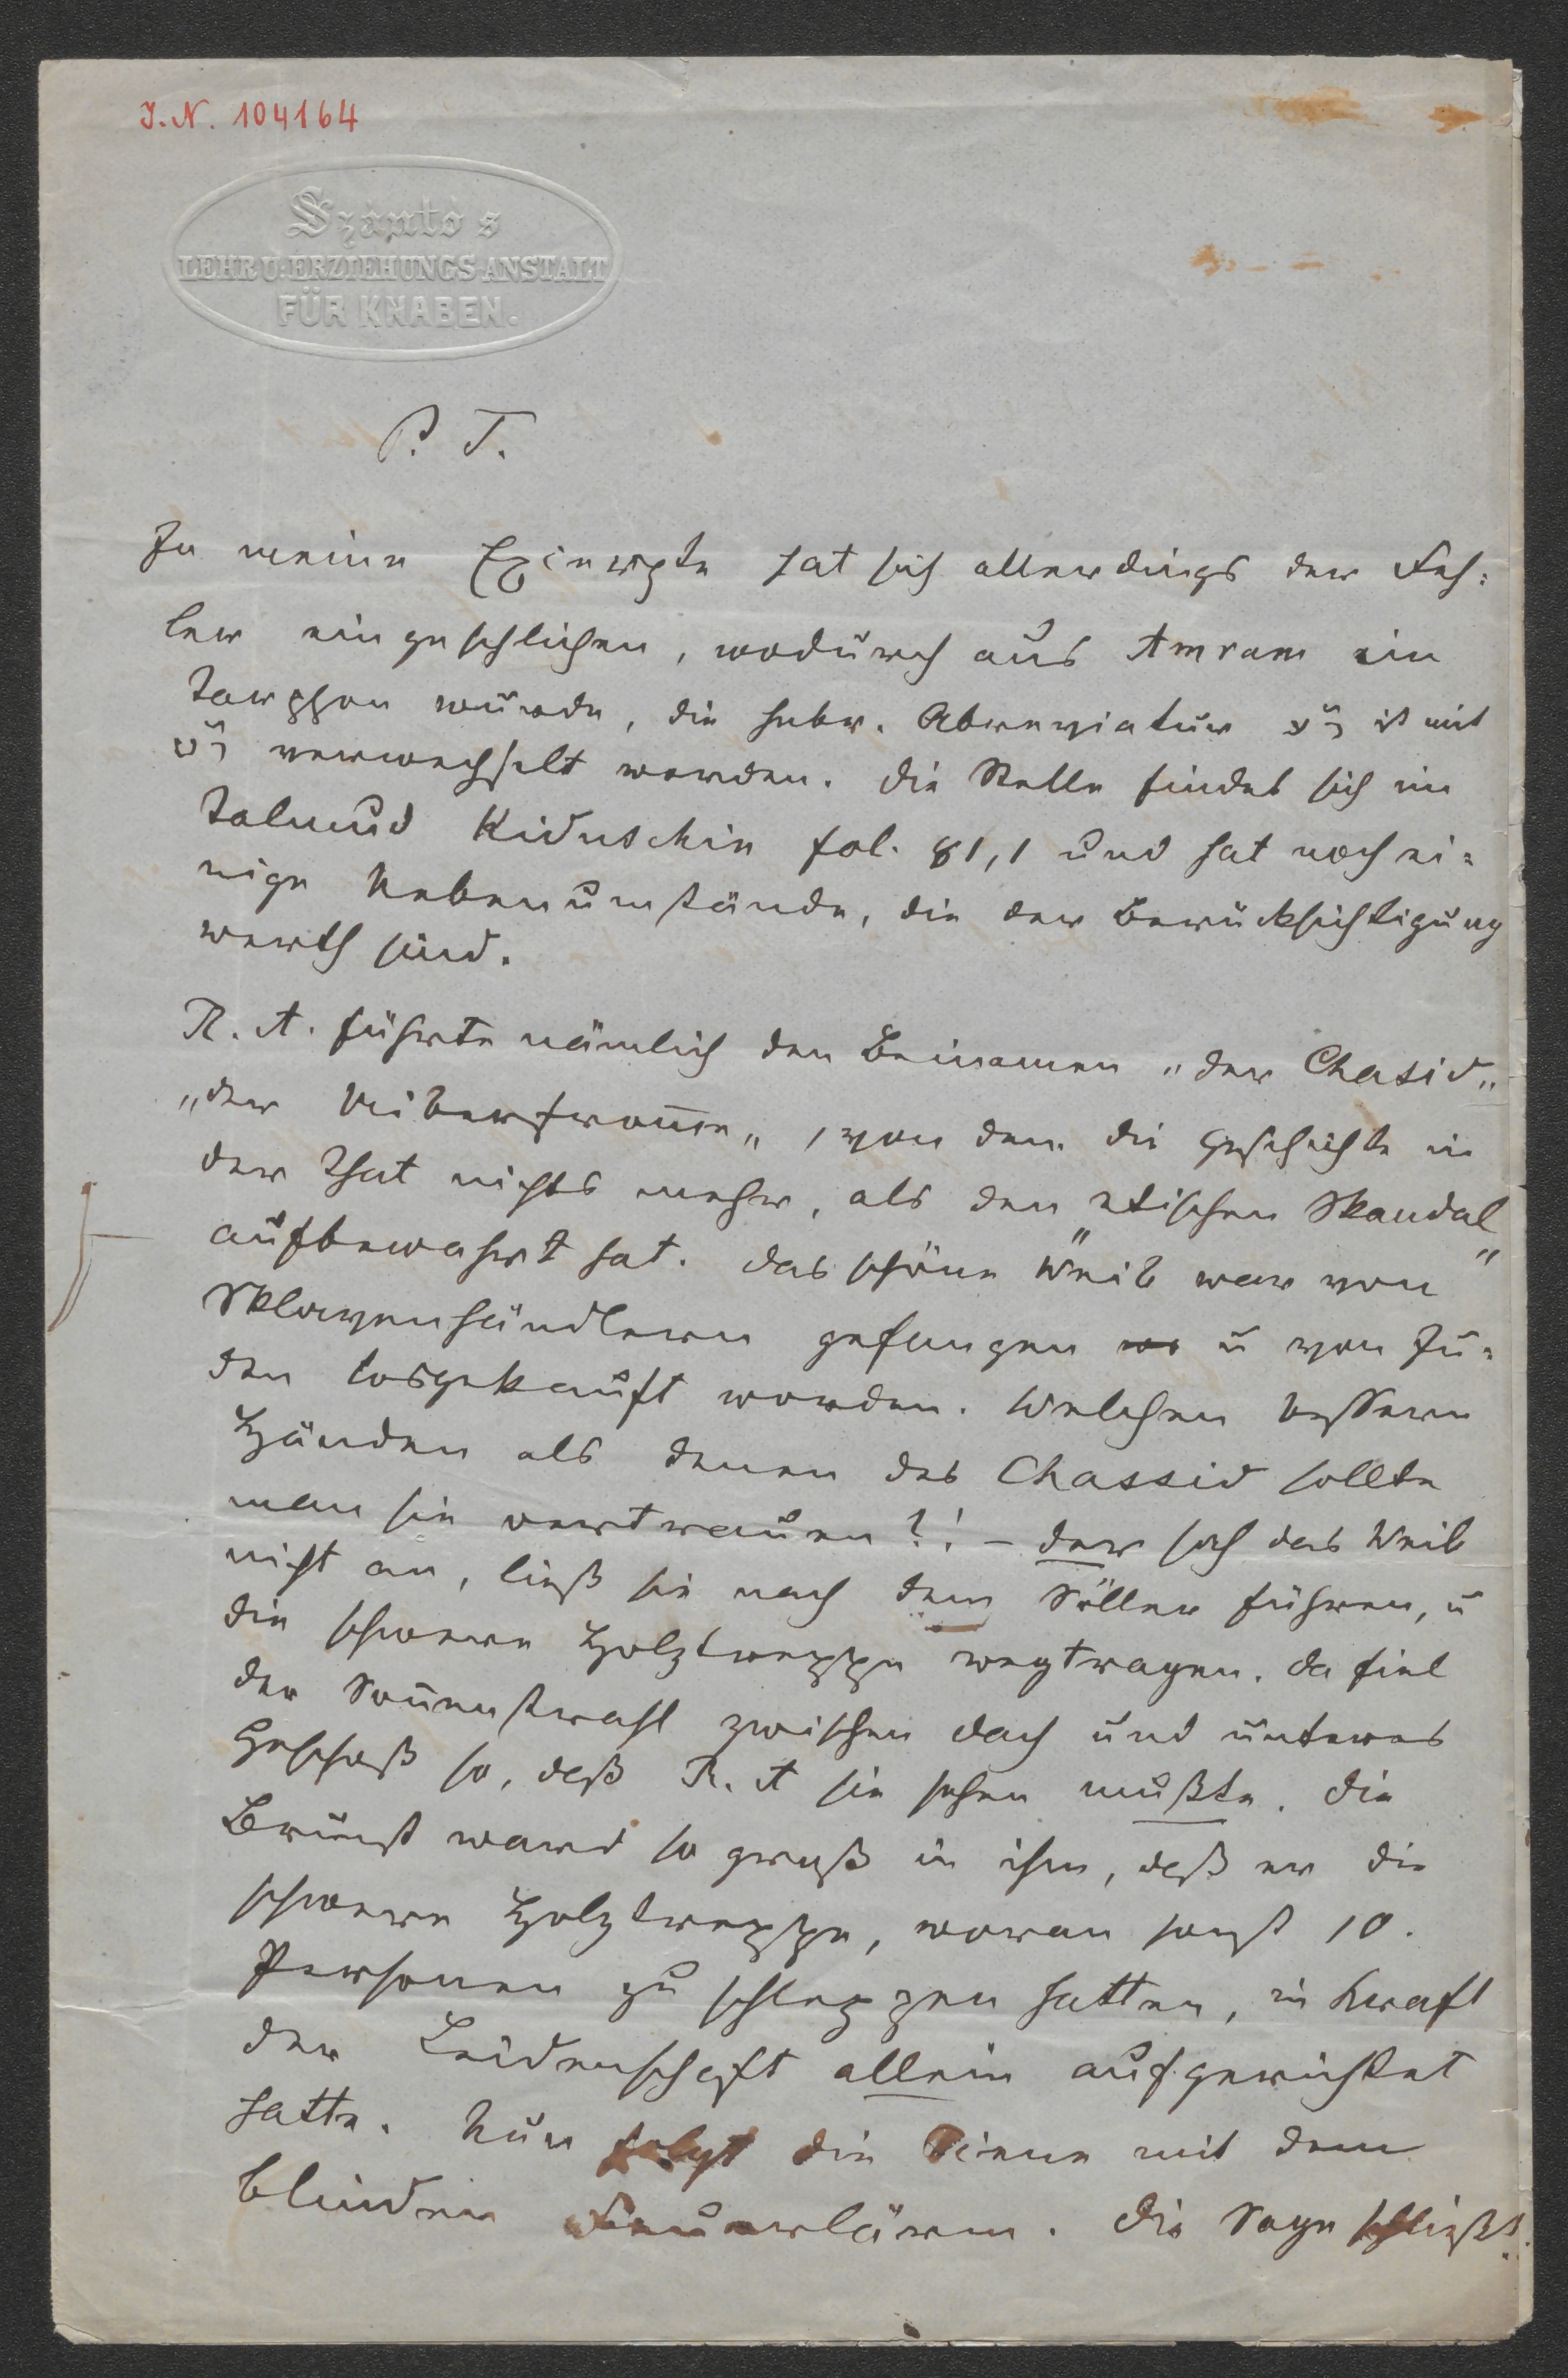 I.N. 104164
Szántó's
LEHR U. ERZIEHUNGS-ANSTALT
FÜR KNABEN.
P. T.
In meine Excerpte hat sich allerdings der Feh=
ler eingeschlichen, wodurch aus Amram ein
Tarphon wurde, die hebr. Abreviatur ר״ע ist mit
ר״ט verwechselt worden. Die Stelle findet sich im
Talmud Kiduschin fol. 81,1 und hat noch ei=
nige Nebenumstände, die der Berücksichtigung
werth sind.
R. A. führte nämlich den Beinamen „der Chasid„
„der Ueberfromme„, von dem die Geschichte in
der That nichts mehr, als den „etischen Skandal"
aufbewahrt hat. Das schöne Weib war von
Sklavenhändlern gefangen u von Ju=
den losgekauft worden. Welchen bessern
Händen als denen des Chassid sollte
man sie vertrauen?! – der sah das Weib
nicht an, ließ sie nach dem Söller führen, u
die schwere Holztreppe wegtragen. Da fiel
der Sonnenstrahl zwischen Dach und unteres
Geschoß so, daß R. A sie sehen mußte. Die
Brunst ward so groß in ihm, daß er die
schwere Holztreppe, woran sonst 10.
Personen zu schleppen hatten, in Kraft
der Leidenschaft allein aufgerichtet
hatte. Nun folgt die Scene mit dem
blinden Feuerlärm. Die Sage schließt